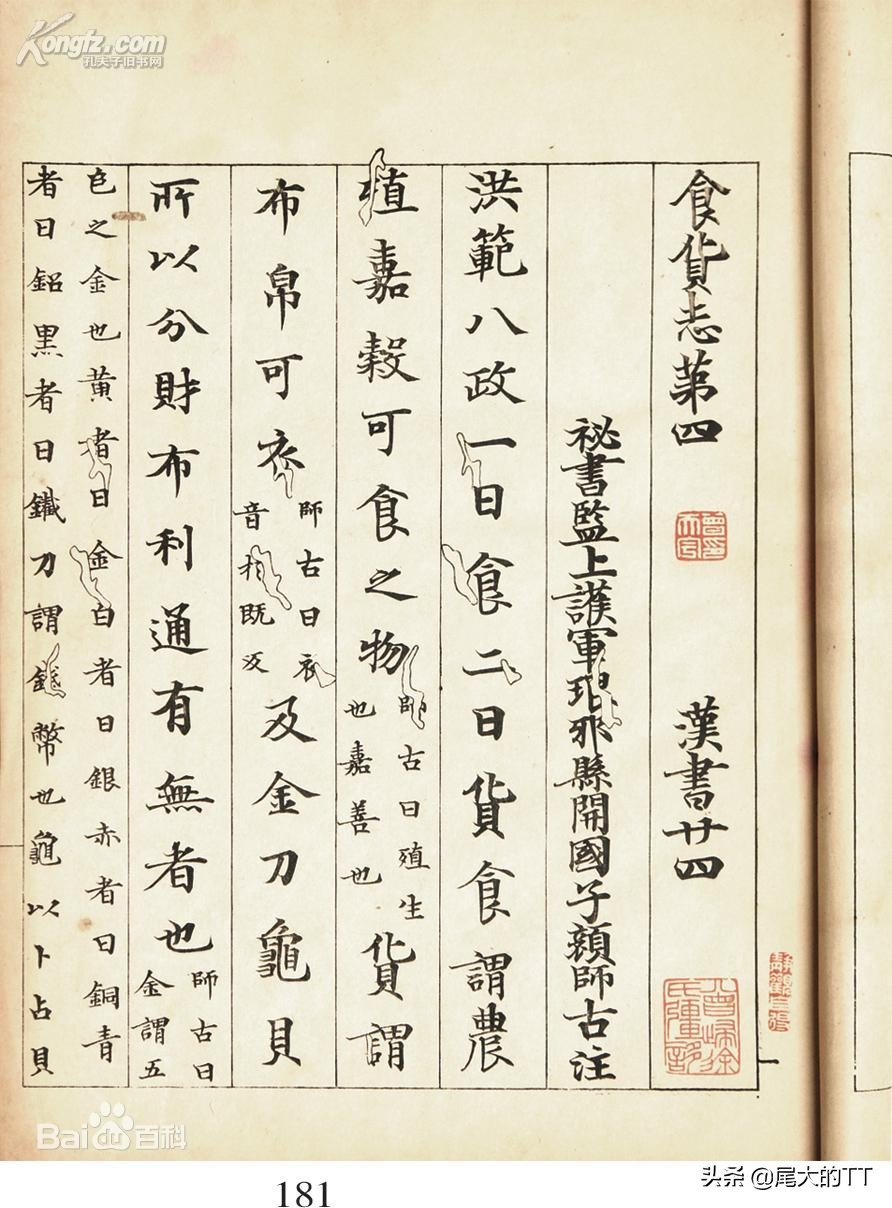 Kongfz.com
孔夫子旧书网
食貨志第四 漢書廿四
祕書監上護軍琅邪縣開國子顏師古注
洪範八政一曰食二曰貨食謂農
殖嘉穀可食之物師古曰殖生也嘉善也貨謂
布帛可衣師古曰衣音於既反及金刀龜貝
所以分財布利通有無者也師古曰金謂五
色之金也黃者曰金白者曰銀赤者曰銅青
者曰鈆黑者曰鐵刀謂錢幣也龜以卜占貝
Bai du 百科
头条 @尾大的TT
181